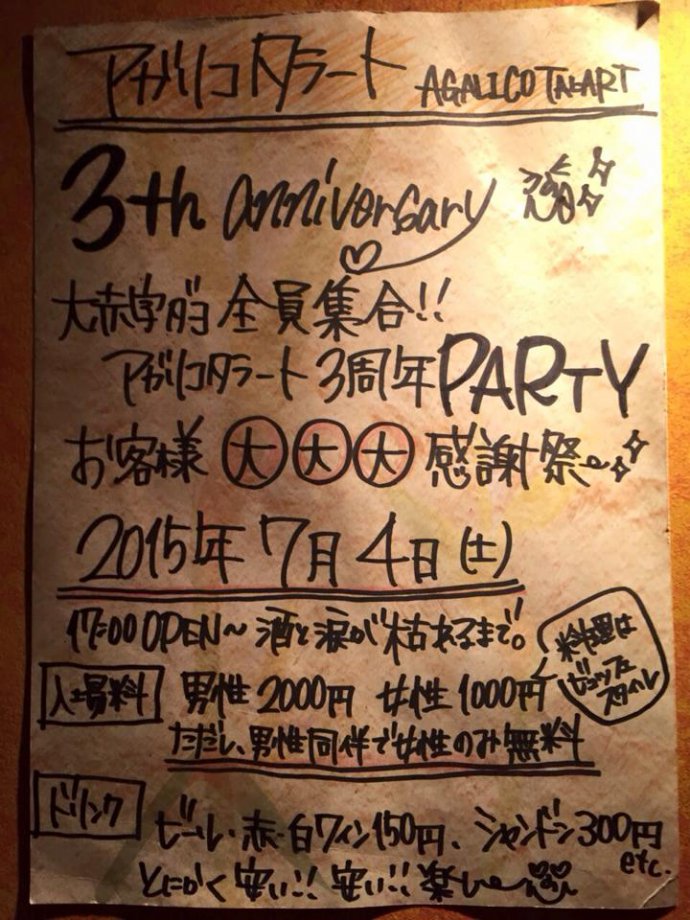 アガリコタラート AGALICO TALART
3th anniversary
大赤字的全員集合!!
アガリコタラート3周年PARTY
お客様 大 大 大 感謝祭〜
2015年7月4日(土)
17:00 OPEN〜酒と涙が枯れるまで。
料理は
ビュッフェ
スタイル
入場料 男性2000円 女性1000円
ただし、男性同伴で女性のみ無料
ドリンク ビール・赤・白ワイン150円、シャンドン300円
etc.
とにかく安い!!安い!!楽しー